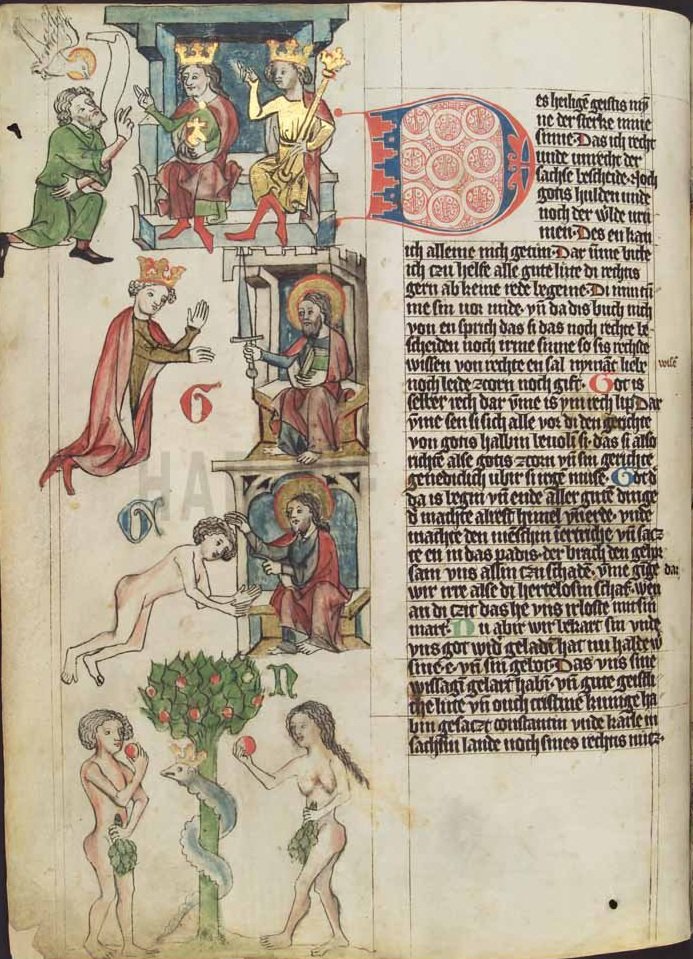 D es heiligē geistis mȳ
ne der sterke mine
sinne· Das ich recht
unde unrecht der
sachse bescheide· Noch
gotis hulden unde
noch der w̔lde vru
men· Des en kan
ich alleine nich getun· Dar ūme bitte
ich czu helfe alle gute lute di rechtis
gern ab keine rede begeine· Di min tū
me sin vor mide· vn̄ da dis buch nich
von en sprich das si das noch rechte be
scheiden noch irme sinne so sis rechtste
wissen von rechte en sal nymāt liebe
wisē
noch leide zcorn noch gift· Got is
selber rech dar v̄me is ym rech lip Dar
v̄me sen si sich alle vor di den gerichte
von gotis halbin bevoli si· das si also
richtē alse gotis zcorn vn̄ sin gerichte
genediclich ubir si irge muse· Got d
da is begin vn̄ ende aller gutē dinge
d machte alrest himel v̄n erde· vnde
machte den mēschin īertriche vn̄ sacz
te en in das padis· der brach den gehor
sam vns allin czu schadē· v̄me gīge
dar
wir irre alse di hertelosin schaf· wen
an di czit das he vns irloste mit sin
mart̄· Nu abir wir bekart sin vnde
vns got wid geladē hat nu haldē w
sine· e· vn̄ sin gebot· Das vns sine
wissagī gelart habī· vn̄ gute geistli
che lute vn̄ ouch cristine kunige ha
bin gesaczt constantin vnde karle in
sachsin lande noch sines rechtis micz·
G
G
N